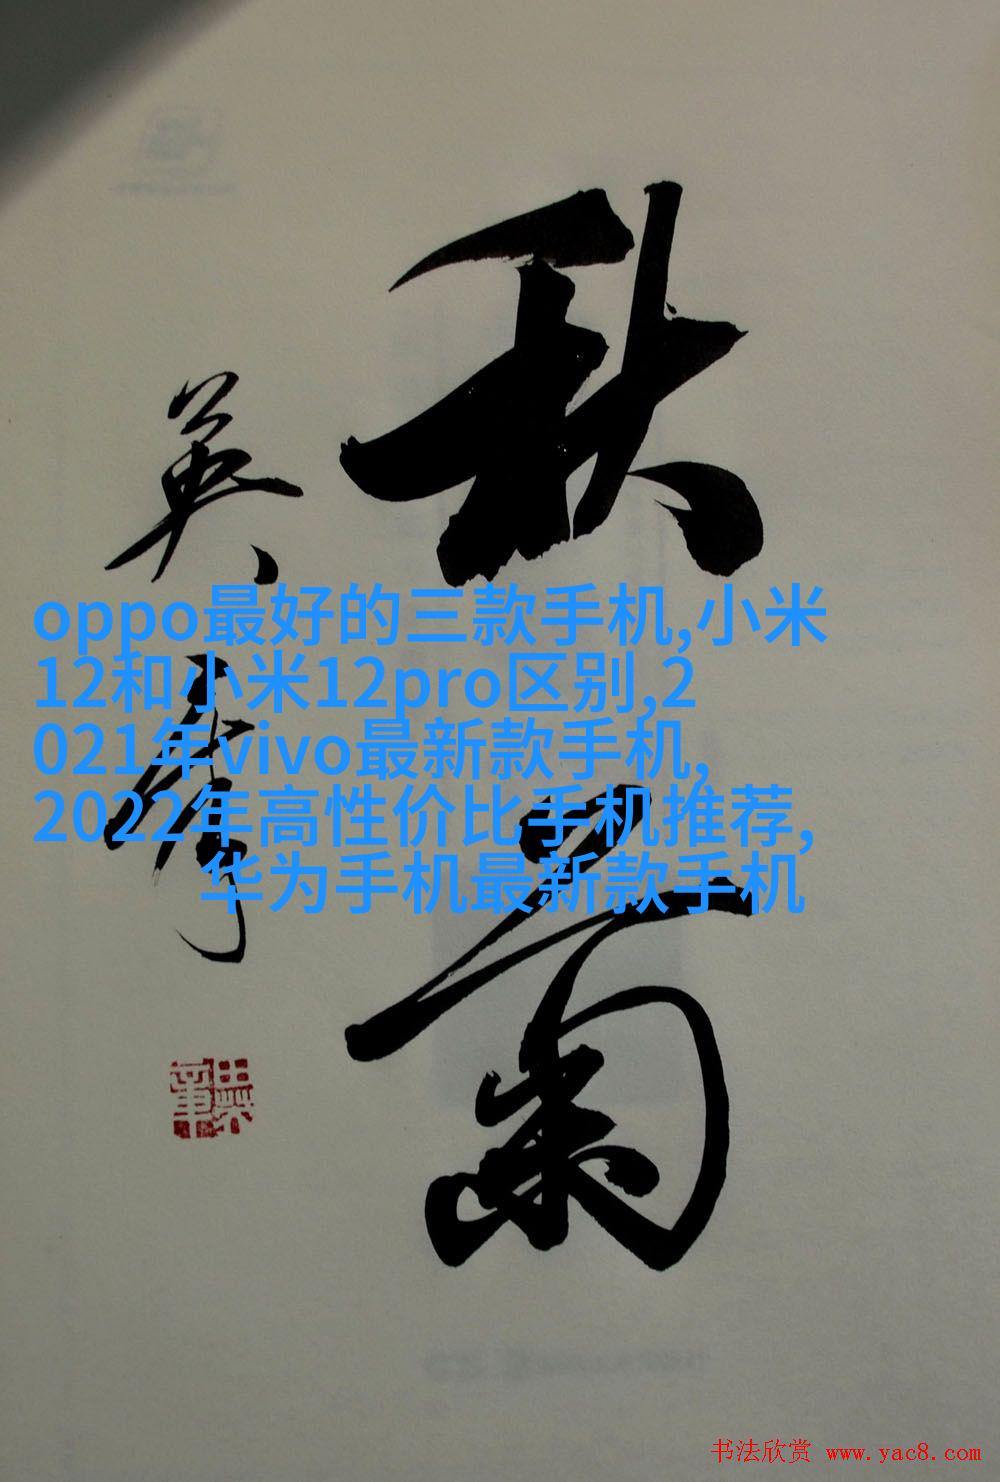 秋菊
英章
oppo最好的三款手机,小米
12和小米12pro区别,2
021年vivo最新款手机,
2022年高性价比手机推荐,
华为手机最新款手机
书法欣赏 www.yac8.com